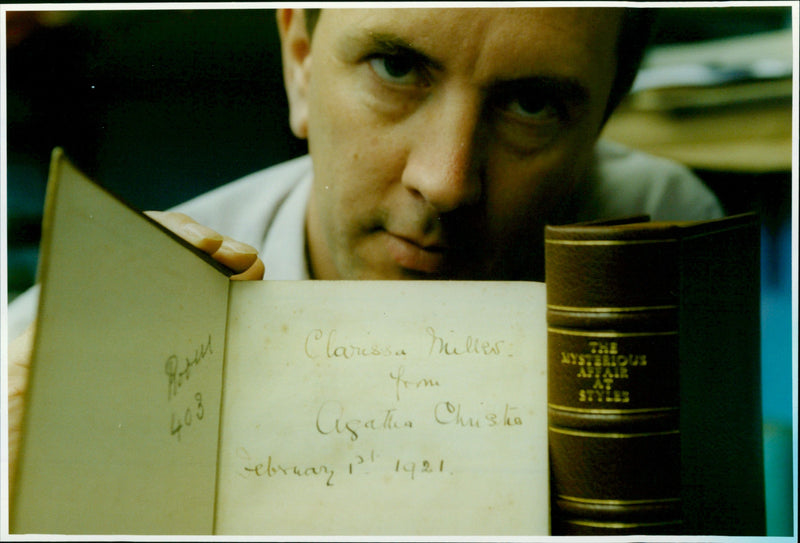 403
Clarissa Miller.
from
Agatha Christie
February 1st 1921.
THE
MYSTERIOUS
AFFAIR
AT
STYLES